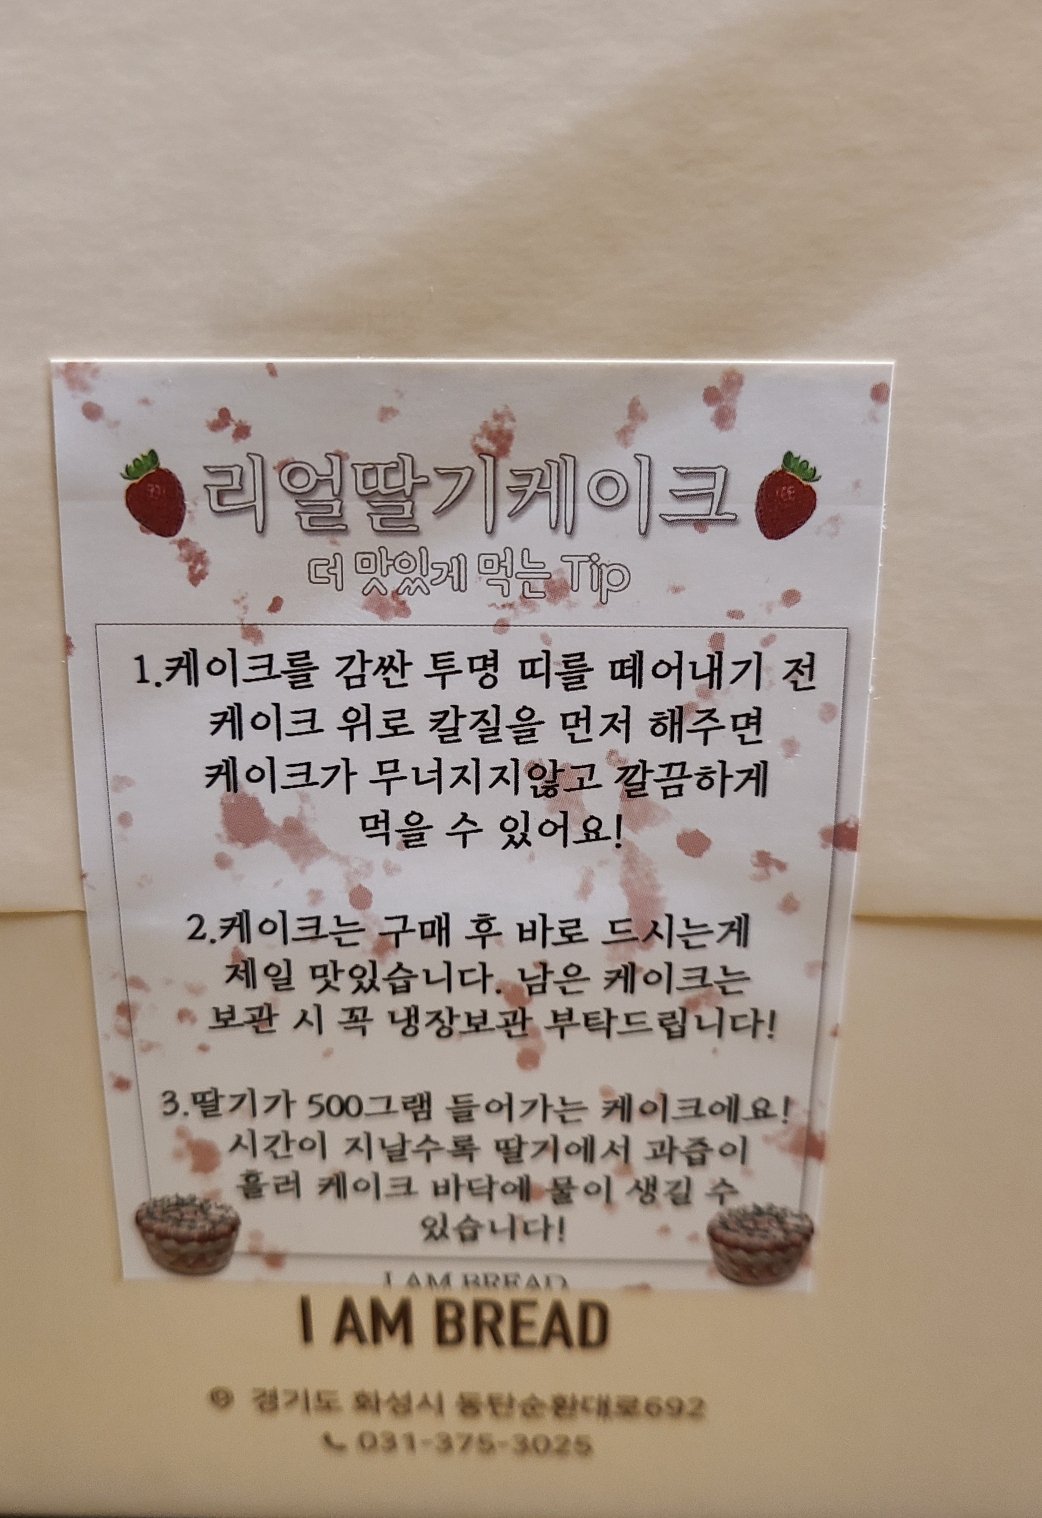 리얼딸기케이크
더 맛있게 먹는 Tip
1.케이크를 감싼 투명 띠를 떼어내기 전
케이크 위로 칼질을 먼저 해주면
케이크가 무너지지않고 깔끔하게
먹을 수 있어요!
2.케이크는 구매 후 바로 드시는게
제일 맛있습니다. 남은 케이크는
보관 시 꼭 냉장보관 부탁드립니다!
3.딸기가 500그램 들어가는 케이크에요!
시간이 지날수록 딸기에서 과즙이
흘러 케이크 바닥에 물이 생길 수
있습니다!
I AM BREAD
I AM BREAD
경기도 화성시 동탄순환대로692
031-375-3025